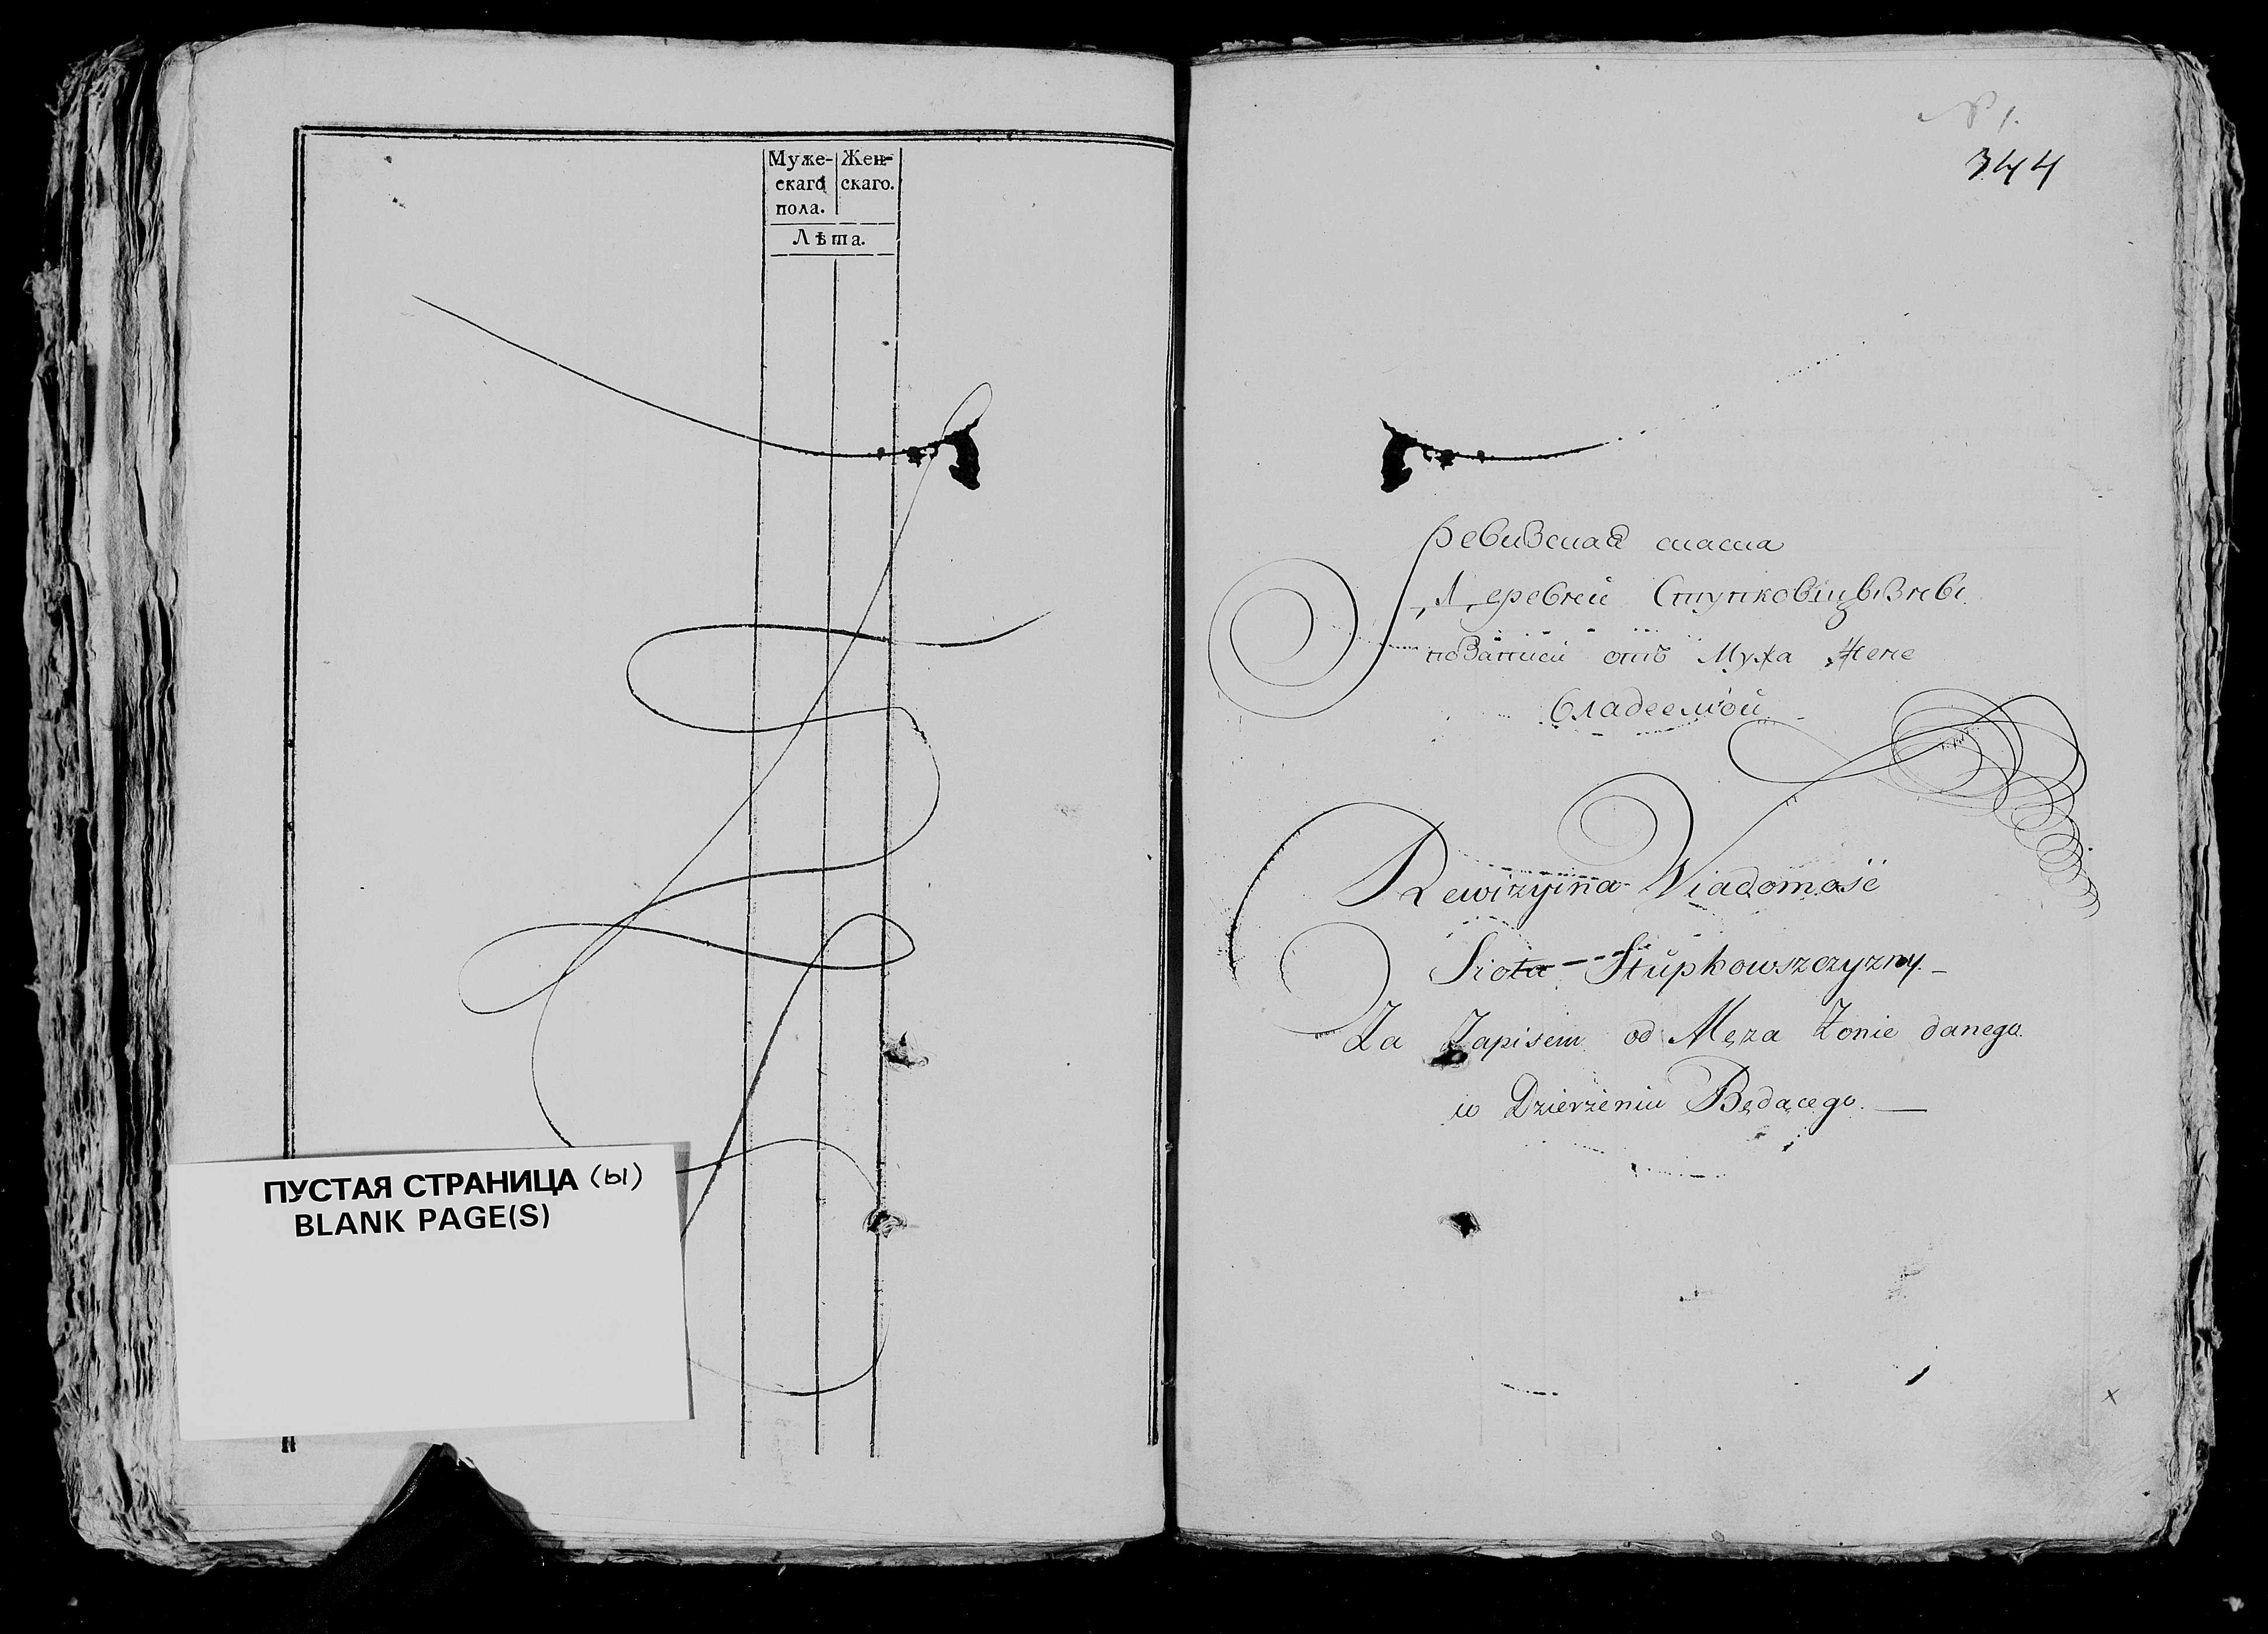 Муже- Жен-
скаго скаго.
пола.
Лѣта.
ПУСТАЯ СТРАНИЦА (ы)
BLANK PAGE(S)
№ 1.
344
Ревизская
Деревни
по записи отъ Мужа Жене
владеемой
Rewizyina Wiadomość
Sioła Stupkowszczyzny
Za Zapisem od Męza Zonie danego
w Dzierżeniu Będącego.